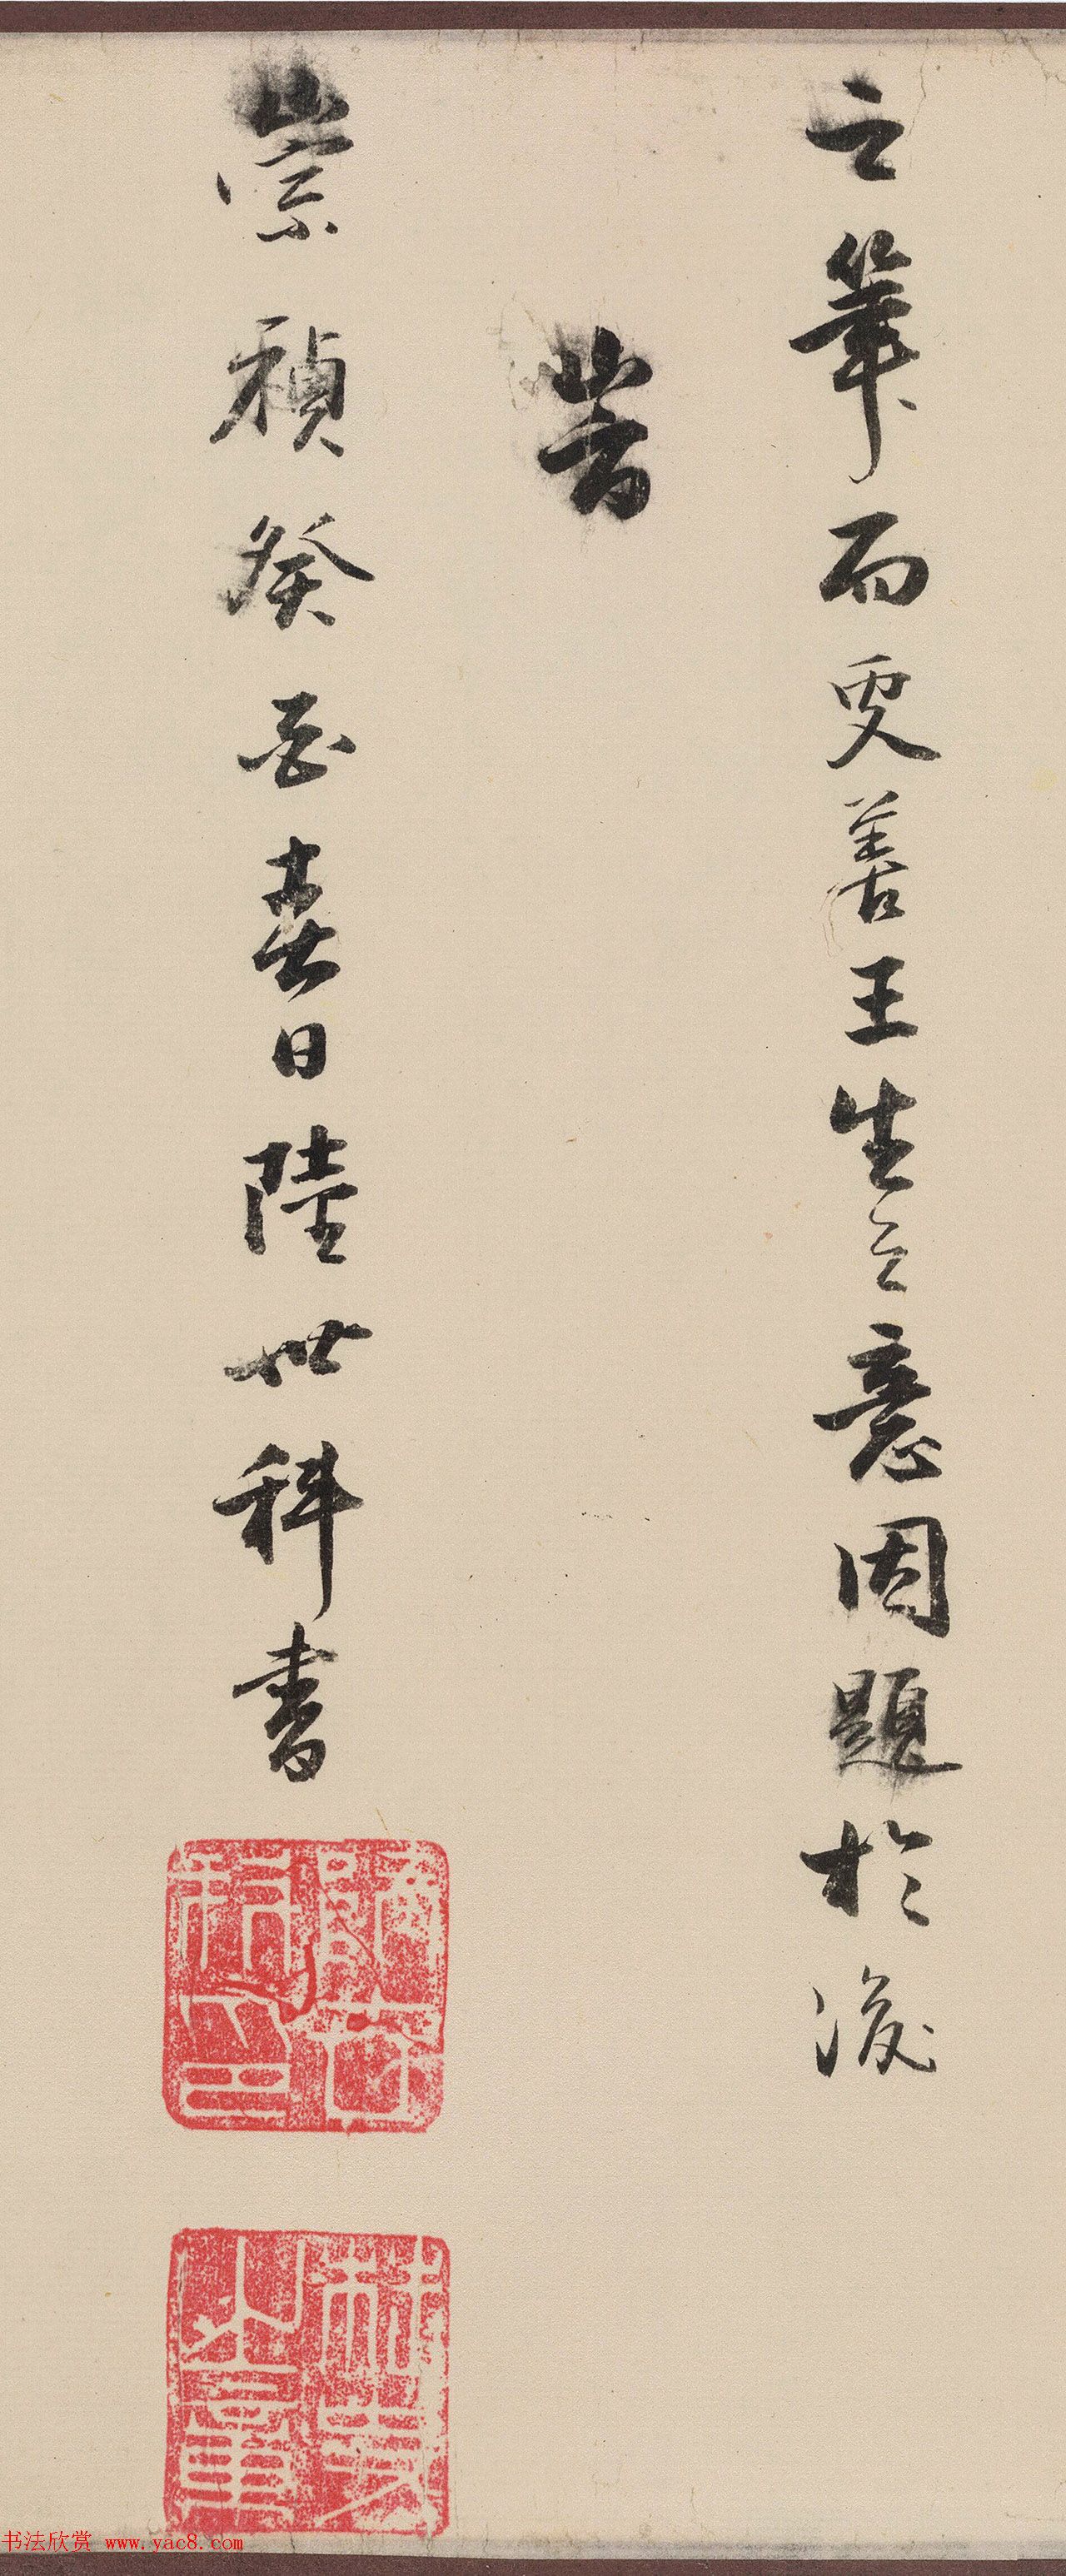 之筆而更善王生之意因題於後
旹
崇禎癸酉春日陸世科書
陸世科印
书法欣赏 www.yac8.com